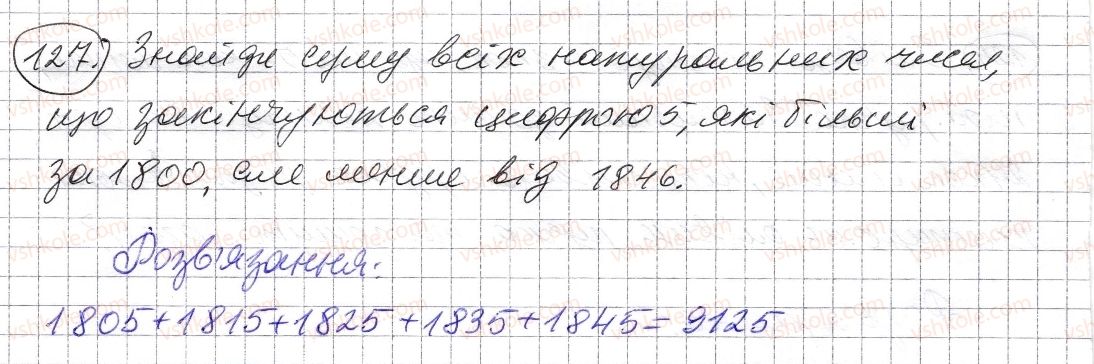 127.) Знайди суму всіх натуральних чисел,
що закінчуються цифрою 5, які більші
за 1800, але менше від 1846.
Розв'язання:
1805+1815+1825+1835+1845=9125